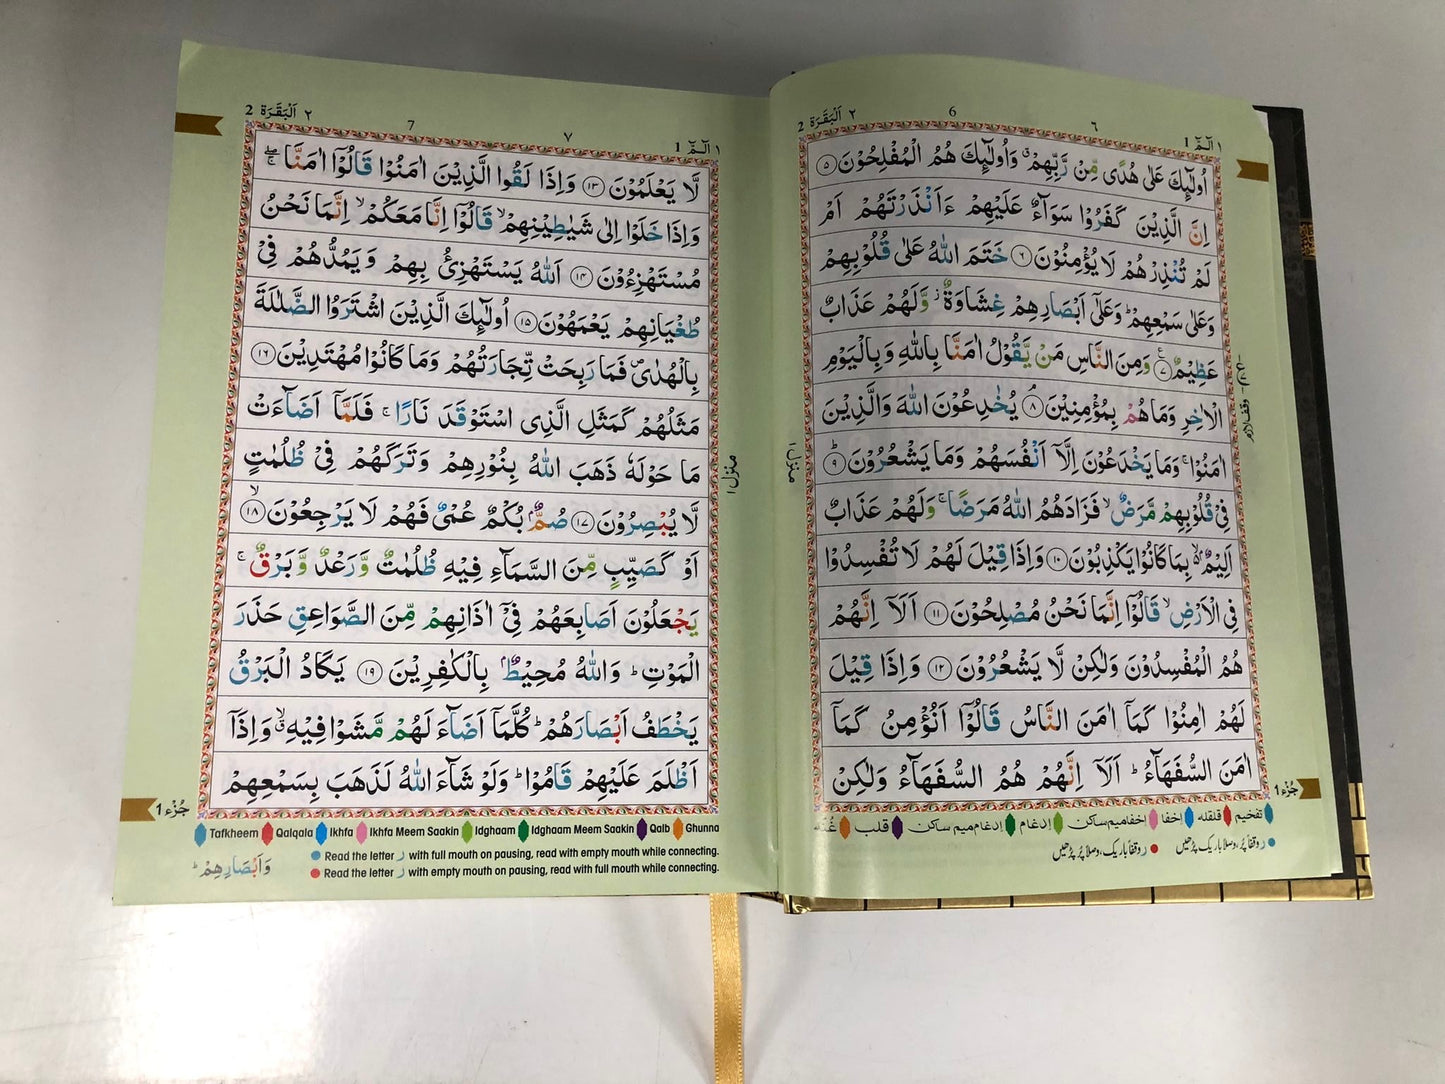 الٓمّٓ ١ 1
٦
6
٢ اَلْبَقَرَة 2
اُولٰٓئِكَ عَلٰى هُدًى مِّنْ رَّبِّهِمْ ۙ وَاُولٰٓئِكَ هُمُ الْمُفْلِحُوْنَ ۝٥
اِنَّ الَّذِيْنَ كَفَرُوْا سَوَآءٌ عَلَيْهِمْ ءَاَنْذَرْتَهُمْ اَمْ
لَمْ تُنْذِرْهُمْ لَا يُؤْمِنُوْنَ ۝٦ خَتَمَ اللّٰهُ عَلٰى قُلُوْبِهِمْ
وَعَلٰى سَمْعِهِمْ ؕ وَعَلٰٓى اَبْصَارِهِمْ غِشَاوَةٌ ؗ وَّلَهُمْ عَذَابٌ
عَظِيْمٌ ۝٧ وَمِنَ النَّاسِ مَنْ يَّقُوْلُ اٰمَنَّا بِاللّٰهِ وَبِالْيَوْمِ
الْاٰخِرِ وَمَا هُمْ بِمُؤْمِنِيْنَ ۝٨ يُخٰدِعُوْنَ اللّٰهَ وَالَّذِيْنَ
اٰمَنُوْا ۚ وَمَا يَخْدَعُوْنَ اِلَّاۤ اَنْفُسَهُمْ وَمَا يَشْعُرُوْنَ ؕ ۝٩
فِيْ قُلُوْبِهِمْ مَّرَضٌ ۙ فَزَادَهُمُ اللّٰهُ مَرَضًا ۚ وَلَهُمْ عَذَابٌ
اَلِيْمٌ ۙ بِمَا كَانُوْا يَكْذِبُوْنَ ۝١٠ وَاِذَا قِيْلَ لَهُمْ لَا تُفْسِدُوْا
فِي الْاَرْضِ ۙ قَالُوْٓا اِنَّمَا نَحْنُ مُصْلِحُوْنَ ۝١١ اَلَاۤ اِنَّهُمْ
هُمُ الْمُفْسِدُوْنَ وَلٰكِنْ لَّا يَشْعُرُوْنَ ۝١٢ وَاِذَا قِيْلَ
لَهُمْ اٰمِنُوْا كَمَاۤ اٰمَنَ النَّاسُ قَالُوْٓا اَنُؤْمِنُ كَمَاۤ
اٰمَنَ السُّفَهَآءُ ؕ اَلَاۤ اِنَّهُمْ هُمُ السُّفَهَآءُ وَلٰكِنْ
وقف لازم
منزل ١
جُزْء 1
تفخیم قلقلہ اخفا اخفا میم ساکن ادغام ادغام میم ساکن قلب غنہ
ر وقفاً پُر، وصلاً باریک پڑھیں ر وقفاً باریک، وصلاً پُر پڑھیں
الٓمّٓ ١ 1
٧
7
٢ اَلْبَقَرَة 2
لَّا يَعْلَمُوْنَ ۝١٣ وَاِذَا لَقُوا الَّذِيْنَ اٰمَنُوْا قَالُوْٓا اٰمَنَّا ۖۚ
وَاِذَا خَلَوْا اِلٰى شَيٰطِيْنِهِمْ ۙ قَالُوْٓا اِنَّا مَعَكُمْ ۙ اِنَّمَا نَحْنُ
مُسْتَهْزِءُوْنَ ۝١٤ اَللّٰهُ يَسْتَهْزِئُ بِهِمْ وَيَمُدُّهُمْ فِيْ
طُغْيَانِهِمْ يَعْمَهُوْنَ ۝١٥ اُولٰٓئِكَ الَّذِيْنَ اشْتَرَوُا الضَّلٰلَةَ
بِالْهُدٰى ۪ فَمَا رَبِحَتْ تِّجَارَتُهُمْ وَمَا كَانُوْا مُهْتَدِيْنَ ۝١٦
مَثَلُهُمْ كَمَثَلِ الَّذِي اسْتَوْقَدَ نَارًا ۚ فَلَمَّاۤ اَضَآءَتْ
مَا حَوْلَهٗ ذَهَبَ اللّٰهُ بِنُوْرِهِمْ وَتَرَكَهُمْ فِيْ ظُلُمٰتٍ
لَّا يُبْصِرُوْنَ ۝١٧ صُمٌّۢ بُكْمٌ عُمْيٌ فَهُمْ لَا يَرْجِعُوْنَ ۙ ۝١٨
اَوْ كَصَيِّبٍ مِّنَ السَّمَآءِ فِيْهِ ظُلُمٰتٌ وَّرَعْدٌ وَّبَرْقٌ ۚ
يَجْعَلُوْنَ اَصَابِعَهُمْ فِيْٓ اٰذَانِهِمْ مِّنَ الصَّوَاعِقِ حَذَرَ
الْمَوْتِ ؕ وَاللّٰهُ مُحِيْطٌۢ بِالْكٰفِرِيْنَ ۝١٩ يَكَادُ الْبَرْقُ
يَخْطَفُ اَبْصَارَهُمْ ؕ كُلَّمَاۤ اَضَآءَ لَهُمْ مَّشَوْا فِيْهِ ۙۗ وَاِذَاۤ
اَظْلَمَ عَلَيْهِمْ قَامُوْا ؕ وَلَوْ شَآءَ اللّٰهُ لَذَهَبَ بِسَمْعِهِمْ
منزل ١
جُزْء 1
Tafkheem Qalqala Ikhfa Ikhfa Meem Saakin Idghaam Idghaam Meem Saakin Qalb Ghunna
Read the letter ر with full mouth on pausing, read with empty mouth while connecting.
Read the letter ر with empty mouth on pausing, read with full mouth while connecting.
وَاَبْصَارِهِمْ ؕ